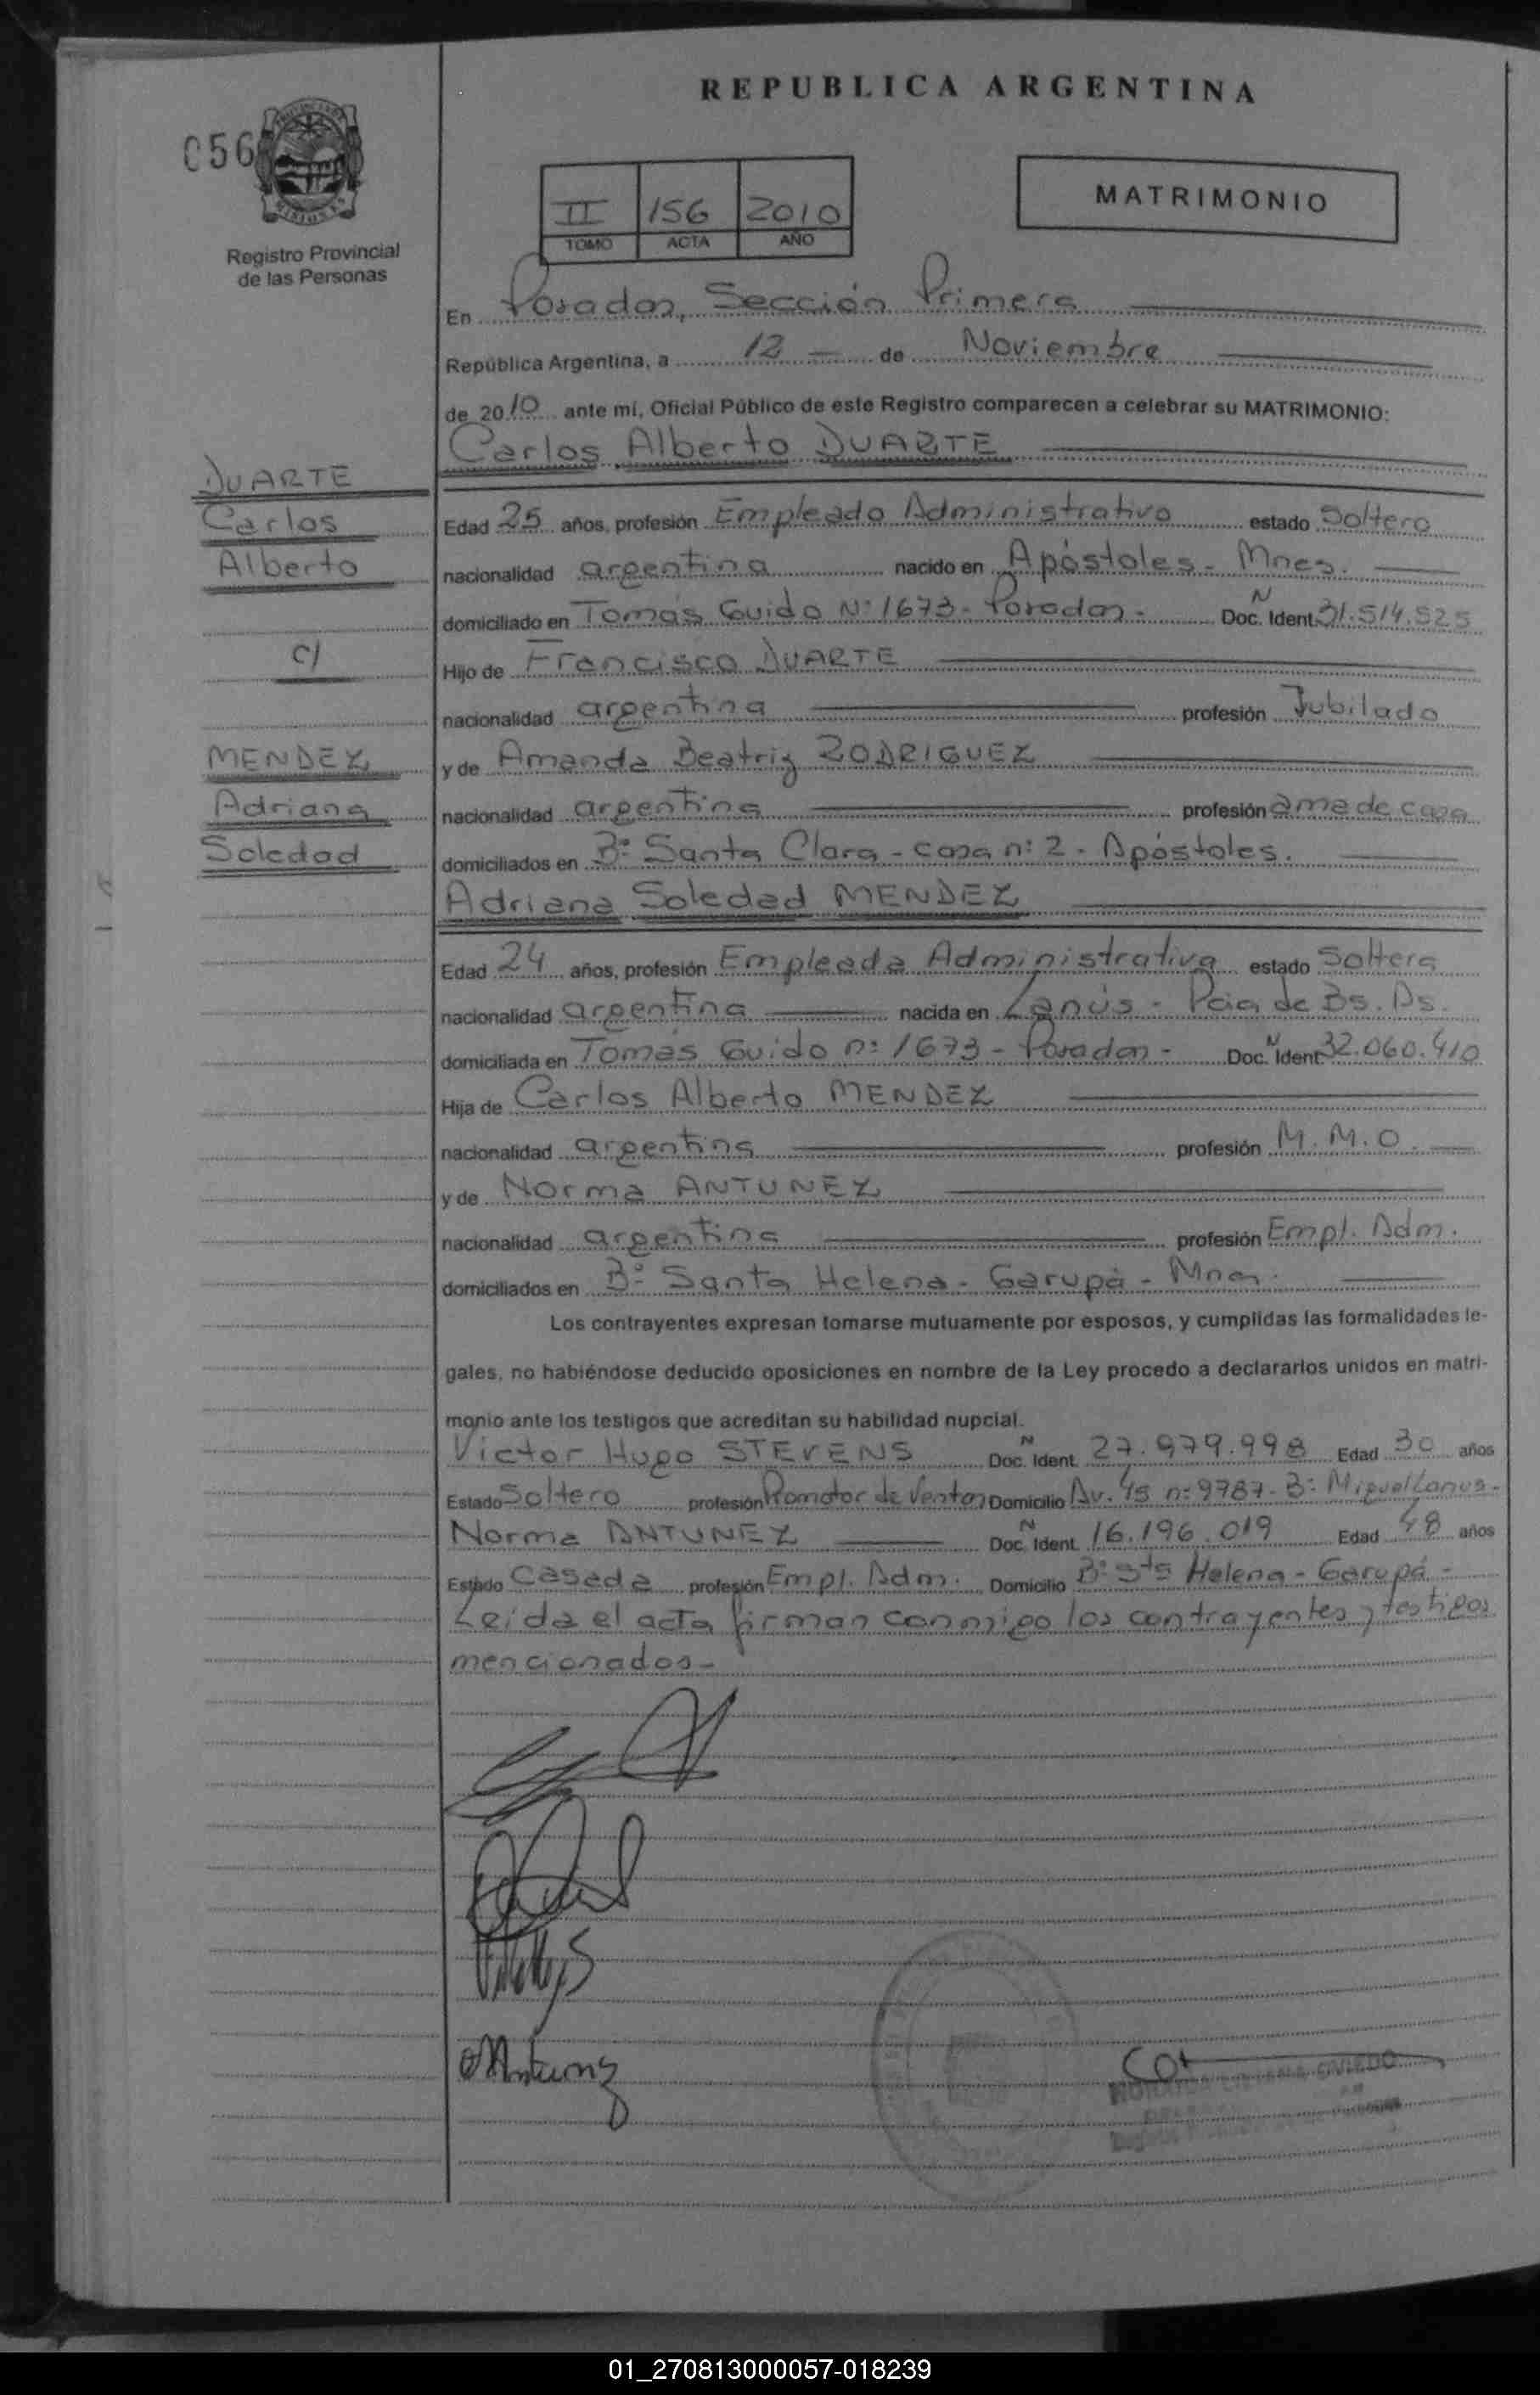 REPUBLICA ARGENTINA
056
MISIONES
Registro Provincial
de las Personas
II 156 2010
TOMO ACTA AÑO
MATRIMONIO
En Posadas, Sección Primera
República Argentina, a 12 de Noviembre
de 2010 ante mí, Oficial Público de este Registro comparecen a celebrar su MATRIMONIO:
Carlos Alberto DUARTE
DUARTE
Carlos
Alberto
c/
MENDEZ
Adriana
Soledad
Edad 25 años, profesión Empleado Administrativo estado Soltero
nacionalidad argentina nacido en Apóstoles - Mnes.
domiciliado en Tomás Guido Nº 1673 - Posadas - Doc. N Ident. 31.514.525
Hijo de Francisco DUARTE
nacionalidad argentina profesión Jubilado
y de Amanda Beatriz RODRIGUEZ
nacionalidad argentina profesión ama de casa
domiciliados en Bº Santa Clara - casa nº 2 - Apóstoles.
Adriana Soledad MENDEZ
Edad 24 años, profesión Empleada Administrativa estado Soltera
nacionalidad argentina nacida en Lanús - Pcia de Bs. As.
domiciliada en Tomás Guido nº 1673 - Posadas - Doc. N Ident. 32.060.410
Hija de Carlos Alberto MENDEZ
nacionalidad argentina profesión M.M.O.
y de Norma ANTUNEZ
nacionalidad argentina profesión Empl. Adm.
domiciliados en Bº Santa Helena - Garupá - Mnes.
Los contrayentes expresan tomarse mutuamente por esposos, y cumplidas las formalidades le-
gales, no habiéndose deducido oposiciones en nombre de la Ley procedo a declararlos unidos en matri-
monio ante los testigos que acreditan su habilidad nupcial.
Victor Hugo STEVENS Doc. N Ident. 27.979.998 Edad 30 años
Estado Soltero profesión Promotor de Ventas Domicilio Av. 45 nº 9787 - Bº Miguel Lanus -
Norma ANTUNEZ Doc. N Ident. 16.196.019 Edad 48 años
Estado Casada profesión Empl. Adm. Domicilio Bº Sta Helena - Garupá -
Leida el acta firman conmigo los contrayentes y testigos
mencionados -
OVIEDO
01_270813000057-018239